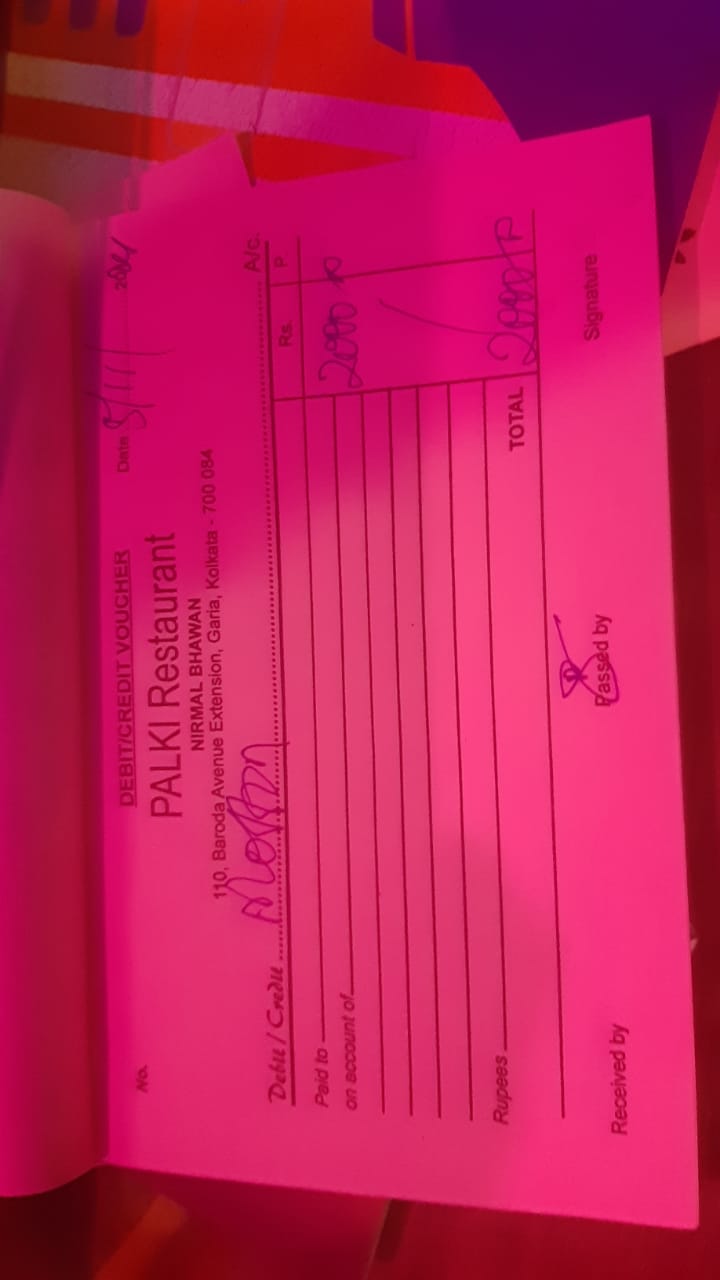 DEBIT/CREDIT VOUCHER
No.
Date 8/11/ 2021
PALKI Restaurant
NIRMAL BHAWAN
110, Baroda Avenue Extension, Garia, Kolkata - 700 084
Debit / Credit A/c.
Rs. P.
Paid to 2000
on account of
Rupees TOTAL 2000
Received by Passed by Signature